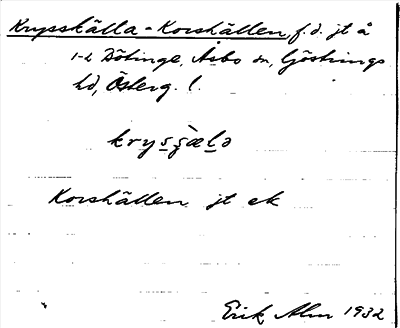 Krysskälla - Korskällen, f.d. jt å
1-2 Dötinge, Åsbo sn, Göstrings
hd, Österg. l.
krysʂælə
Korskällen jt ek
Erik Alm 1932